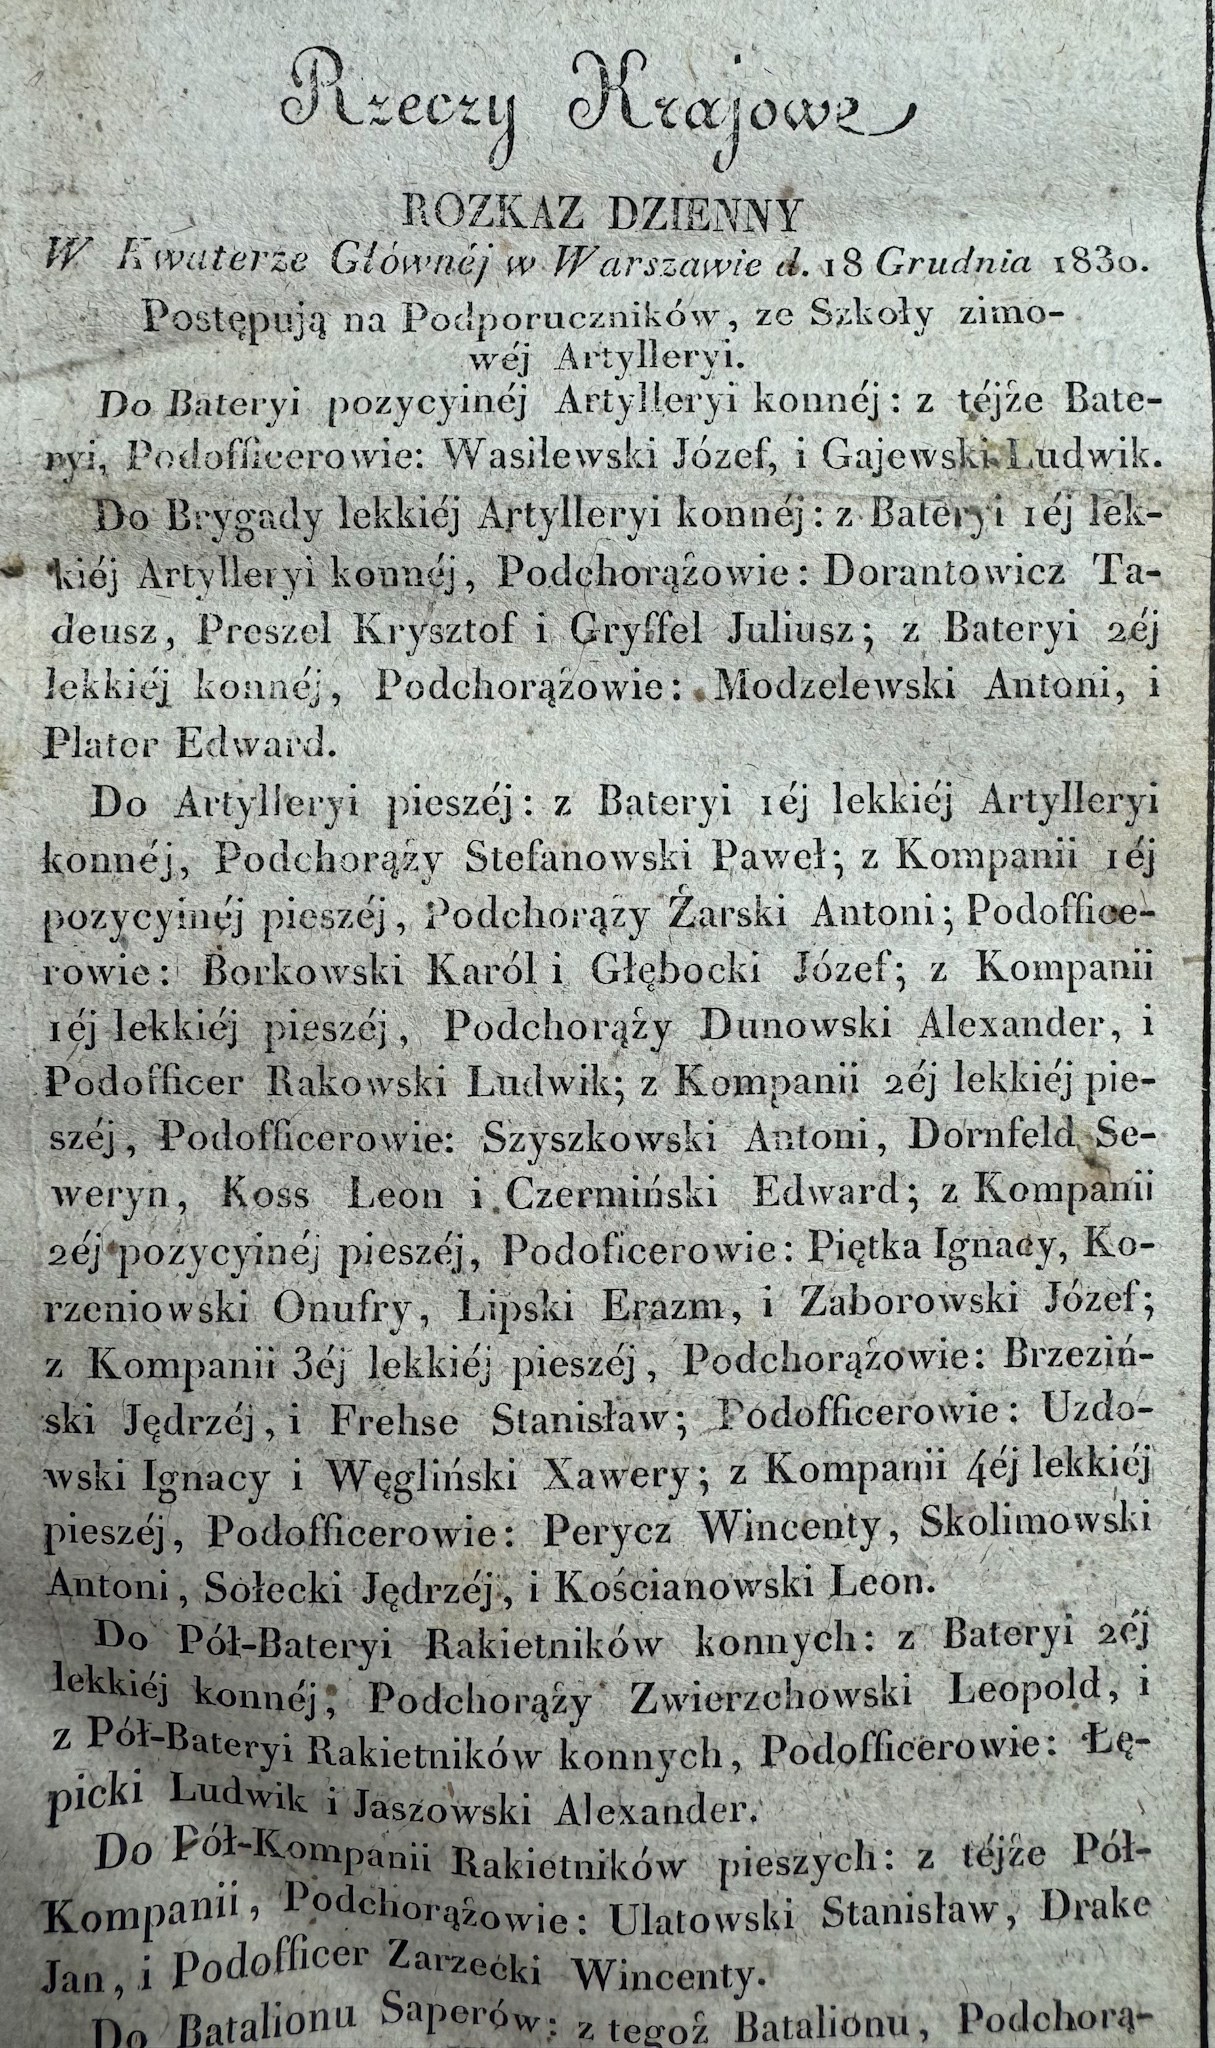 Rzeczy Krajowe
ROZKAZ DZIENNY
W Kwaterze Głównéj w Warszawie d. 18 Grudnia 1830.
Postępują na Podporuczników, ze Szkoły zimo-
wéj Artylleryi.
Do Bateryi pozycyinéj Artylleryi konnéj: z téjże Bate-
ryi, Podofficerowie: Wasilewski Józef, i Gajewski Ludwik.
Do Brygady lekkiéj Artylleryi konnéj: z Bateryi 1éj lek-
kiéj Artylleryi konnéj, Podchorążowie: Dorantowicz Ta-
deusz, Preszel Krysztof i Gryffel Juliusz; z Bateryi 2éj
lekkiéj konnéj, Podchorążowie: Modzelewski Antoni, i
Plater Edward.
Do Artylleryi pieszéj: z Bateryi 1éj lekkiéj Artylleryi
konnéj, Podchorąży Stefanowski Paweł; z Kompanii 1éj
pozycyinéj pieszéj, Podchorąży Żarski Antoni; Podoffice-
rowie: Borkowski Karól i Głębocki Józef; z Kompanii
1éj lekkiéj pieszéj, Podchorąży Dunowski Alexander, i
Podofficer Rakowski Ludwik; z Kompanii 2éj lekkiéj pie-
széj, Podofficerowie: Szyszkowski Antoni, Dornfeld Se-
weryn, Koss Leon i Czermiński Edward; z Kompanii
2éj pozycyinéj pieszéj, Podoficerowie: Piętka Ignacy, Ko-
rzeniowski Onufry, Lipski Erazm, i Zaborowski Józef;
z Kompanii 3éj lekkiéj pieszéj, Podchorążowie: Brzeziń-
ski Jędrzéj, i Frehse Stanisław; Podofficerowie: Uzdo-
wski Ignacy i Węgliński Xawery; z Kompanii 4éj lekkiéj
pieszéj, Podofficerowie: Perycz Wincenty, Skolimowski
Antoni, Sołecki Jędrzéj, i Kościanowski Leon.
Do Pół-Bateryi Rakietników konnych: z Bateryi 2éj
lekkiéj konnéj, Podchorąży Zwierzchowski Leopold, i
z Pół-Bateryi Rakietników konnych, Podofficerowie: Łę-
picki Ludwik i Jaszowski Alexander.
Do Pół-Kompanii Rakietników pieszych: z téjże Pół-
Kompanii, Podchorążowie: Ulatowski Stanisław, Drake
Jan, i Podofficer Zarzecki Wincenty.
Do Batalionu Saperów: z tegoż Batalionu, Podchorą-